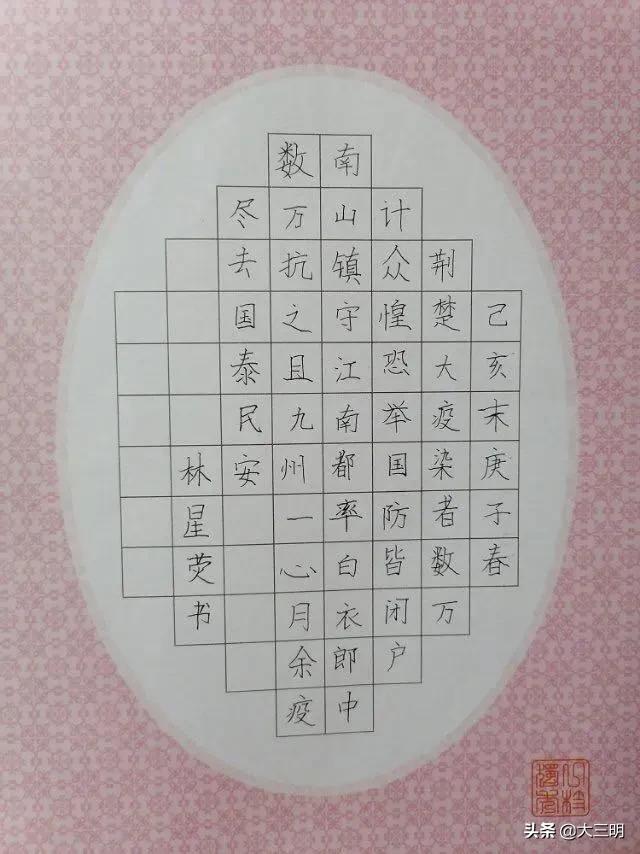 己亥末庚子春
荆楚大疫染者数万
计众惶恐举国防皆闭户
南山镇守江南都率白衣郎中
数万抗之且九州一心月余疫
尽去国泰民安
林星荧书
头条 @大三明